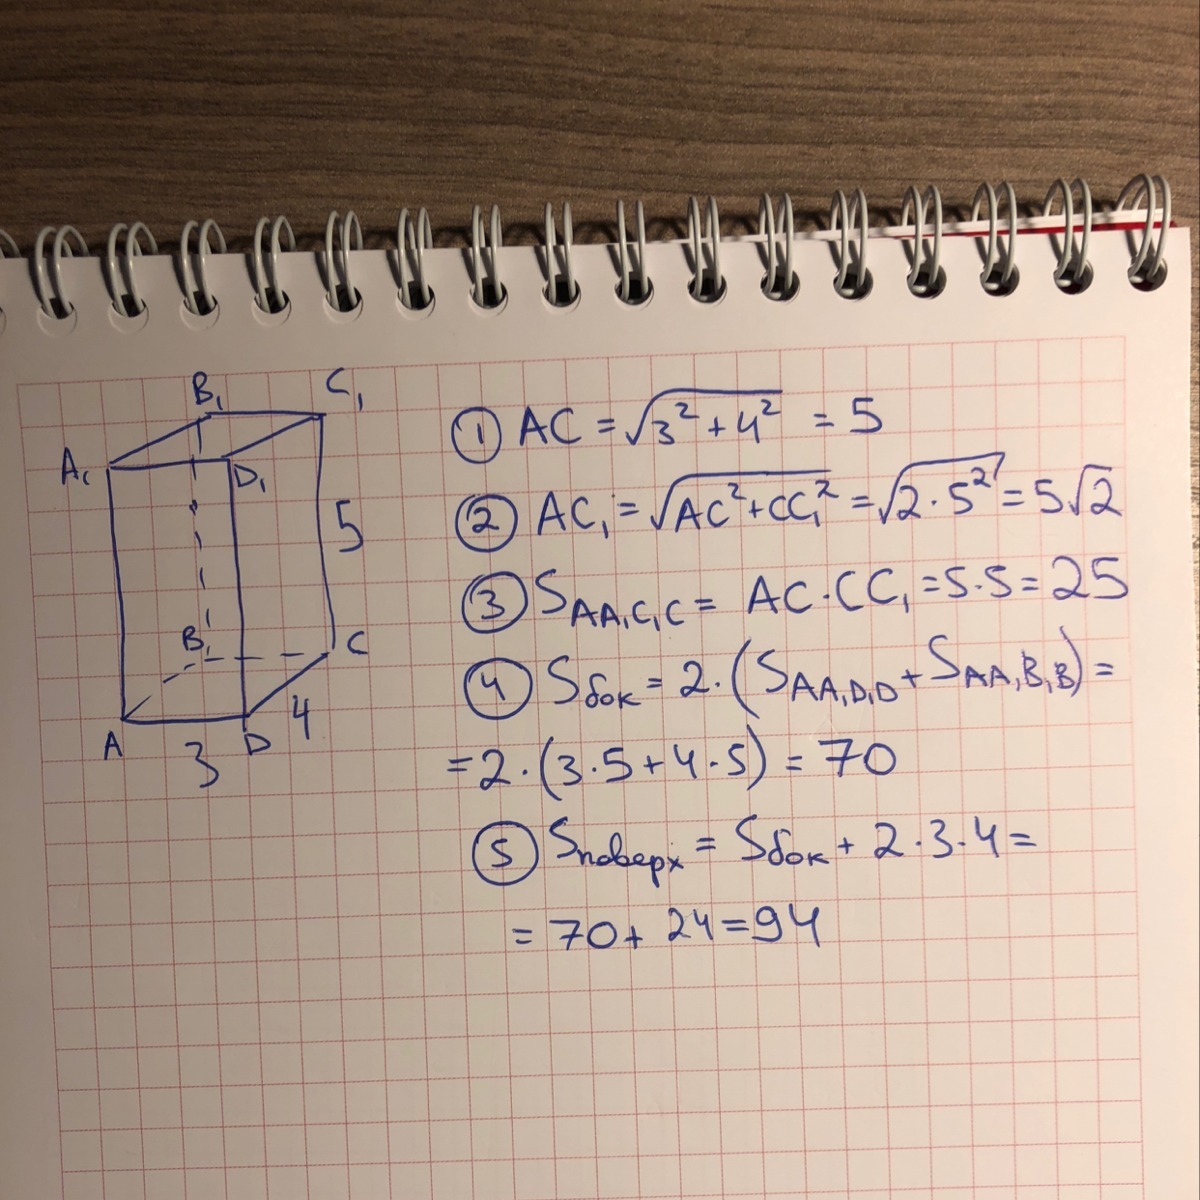 B₁
C₁
A₁
D₁
5
B₁
C
A
D
4
3
① AC = √(3² + 4²) = 5
② AC₁ = √(AC² + CC₁²) = √(2·5²) = 5√2
③ S AA₁C₁C = AC·CC₁ = 5·5 = 25
④ Sбок = 2·(S AA₁D₁D + S AA₁B₁B) =
= 2·(3·5 + 4·5) = 70
⑤ Sповерх = Sбок + 2·3·4 =
= 70 + 24 = 94